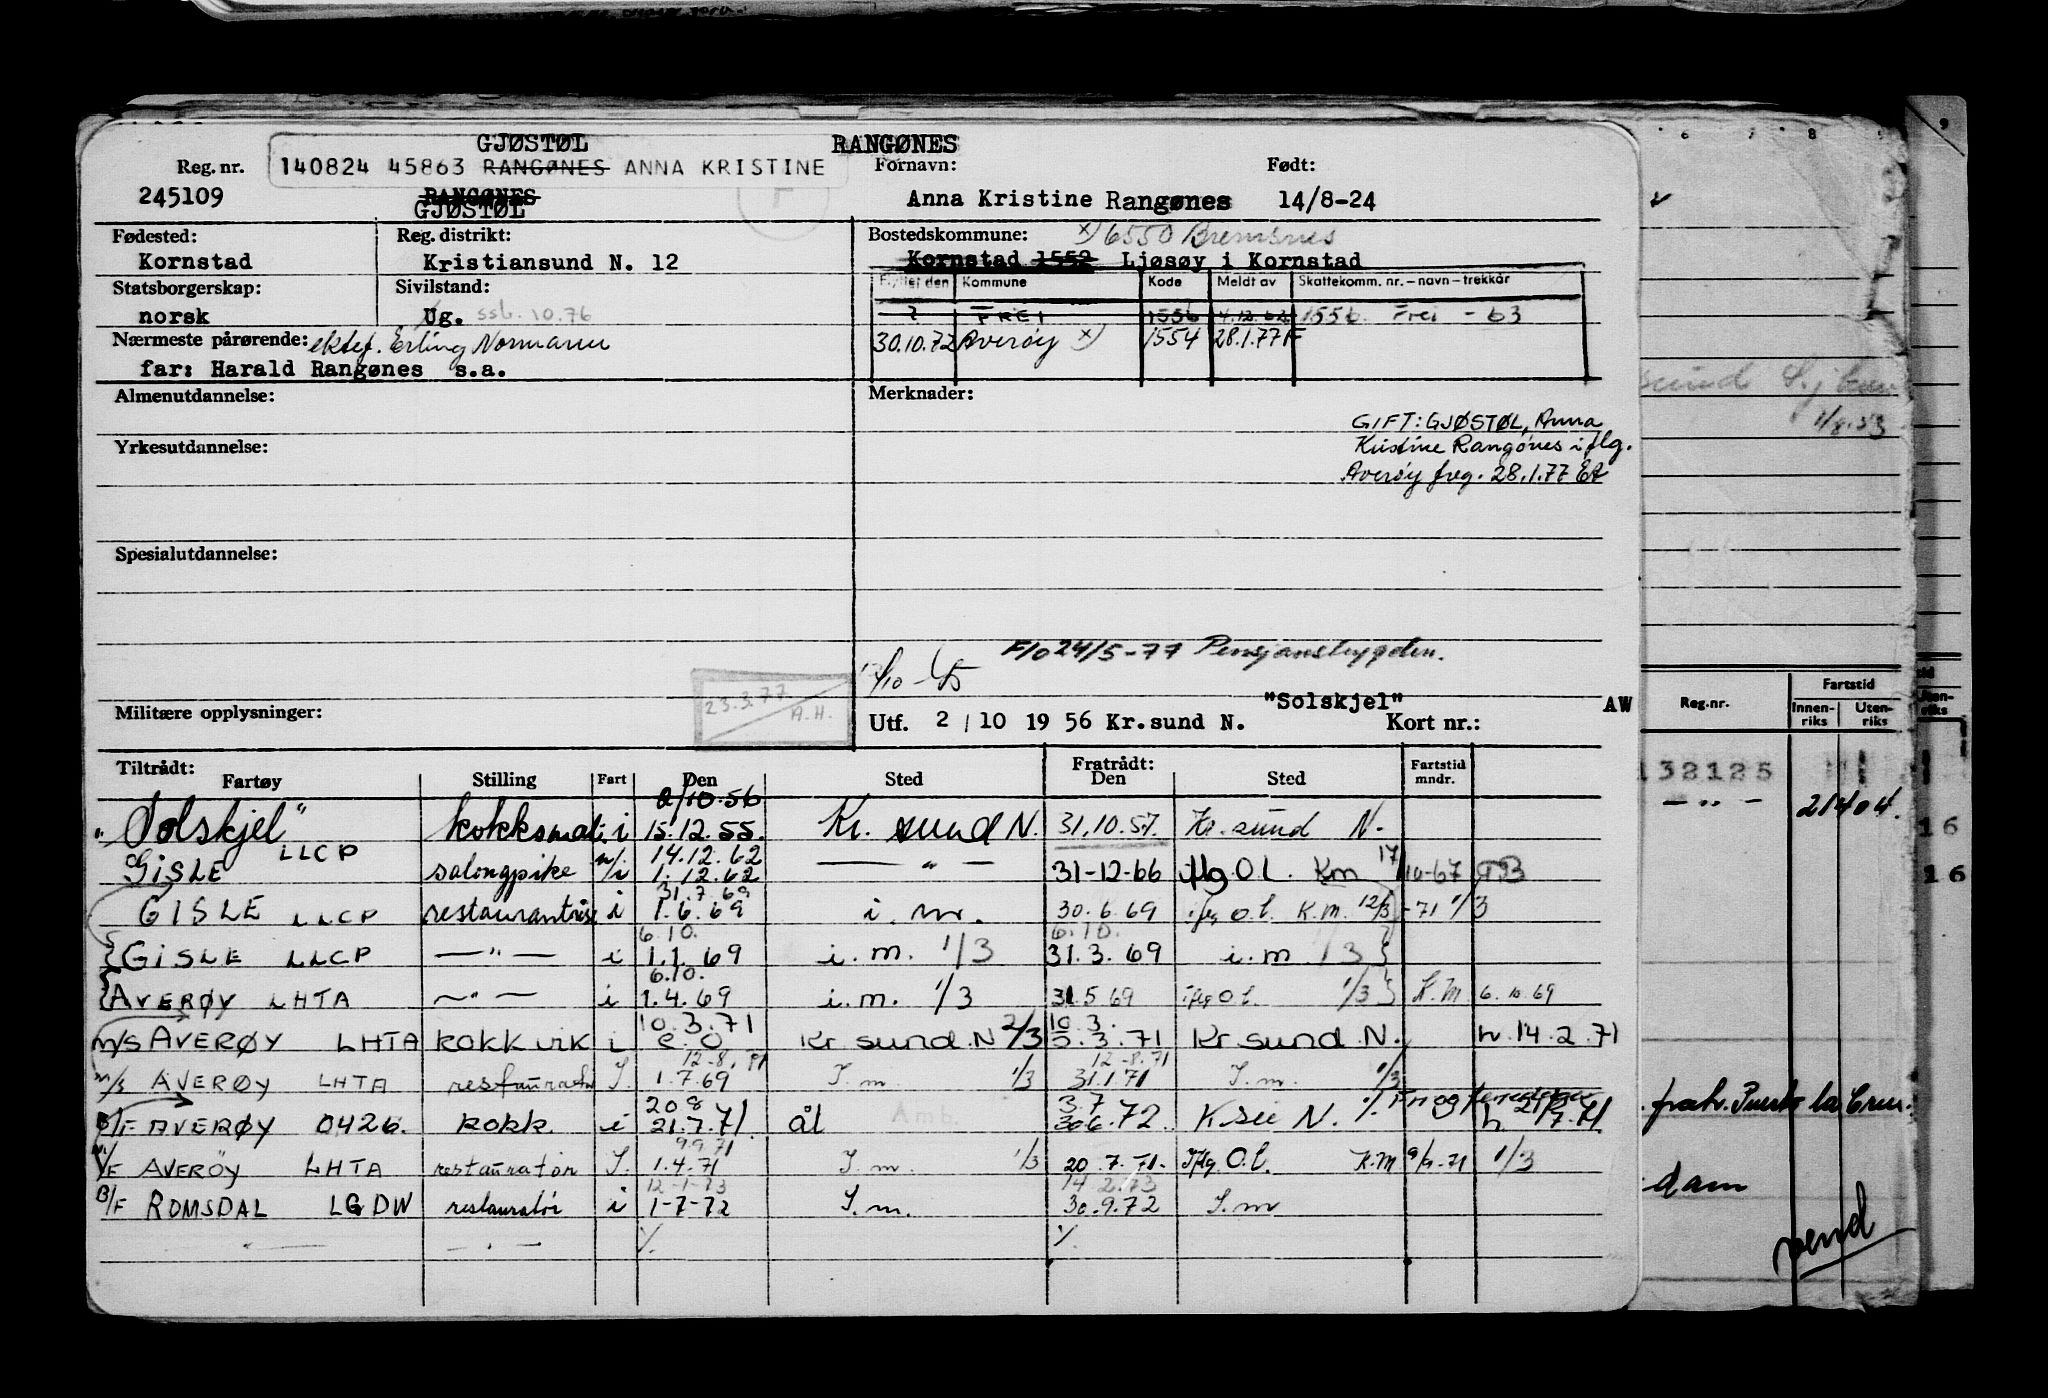 GJØSTØL RANGØNES
Reg. nr. 140824 45863 RANGØNES ANNA KRISTINE Fornavn: Født:
245109 RANGØNES Anna Kristine Rangønes 14/8-24
GJØSTØL
Fødested: Reg. distrikt: Bostedskommune: x) 6550 Bremsnes
Kornstad Kristiansund N. 12 Kornstad 1552 Ljøsøy i Kornstad
Statsborgerskap: Sivilstand: Flyttet den Kommune Kode Meldt av Skattekomm. nr. – navn – trekkår
norsk Ug. ssb. 10.76 ? FREI 1556 4.12.62 1556. Frei - 63
Nærmeste pårørende: ektef. Erling Normann 30.10.72 Averøy x) 1554 28.1.77 F
far: Harald Rangønes s.a.
Almenutdannelse: Merknader:
GIFT: GJØSTØL, Anna
Yrkesutdannelse: Kristine Rangønes iflg.
Averøy freg. 28.1.77
Spesialutdannelse:
F/o 24/5-77 Pensjonstrygden.
23.3.77
A.H.
"Solskjel" AW
Militære opplysninger: Utf. 2 / 10 19 56 Kr.sund N. Kort nr.:
Tiltrådt: Fratrådt:
Fartøy Stilling Fart Den Sted Den Sted Fartstid mndr.
2/10.56
"Solskjel" kokksmat. i 15.12.55. Kr. sund N. 31.10.57. Kr. sund N.
14.12.62
GISLE LLCP salongpike n/i 1.12.62 — " — 31-12-66 iflg O.l. Km 17/10-67
31.7.69
GISLE LLCP restaurantrise i 1.6.69 i. m. 30.6.69 iflg O.l. K.M. 12/3 -71 1/3
6.10. 6.10.
GISLE LLCP — " — i 1.1.69 i. m. 1/3 31.3.69 i. m 1/3
6.10.
AVERØY LHTA — " — i 1.4.69 i. m. 1/3 31.5 69 iflg O.l. 1/3 K.M 6.10.69
10.3.71 10.3.
m/s AVERØY LHTA kokk vik i e.o Kr sund N 2/3 3.71 Kr sund N. h. 14.2.71
12-8.71 12-8.71
m/s AVERØY LHTA restauratør I. 1.7.69 I. m. 1/3 31.1.71 I. m. 1/3
20 8 3.7
B/F AVERØY 0426. kokk. i 21.7.71. ål 30.6.72 K sü N.
9.9.71
M/F AVERØY LHTA restauratør I. 1.4.71 I. m. 1/3 20.7.71. Iflg O.l. K.M 9/9-71 1/3
12-1-73 14 2.73
B/F ROMSDAL LGDW restauratør i 1-7-72 I. m. 30.9.72 I. m
— " — — " — /. /.
6 7 8 9
1/8.53
Reg.nr. Fartstid
Innenriks Utenriks
132125
— " — 21404.
16
16
fratr. Puerto la Cruz.
dam
vend